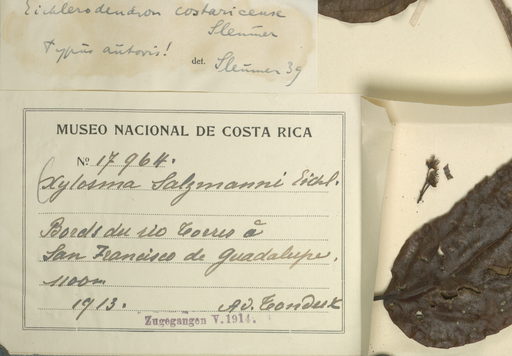 Eichlerodendron costaricense
Sleumer
Typus autoris!
det. Sleumer 39
MUSEO NACIONAL DE COSTA RICA
No 17964.
(Xylosma Salzmanni Eichl.
Bords du rio Torres à
San Francisco de Guadalupe,
1100m
1913. Ad. Tonduz
Zugegangen V. 1914.